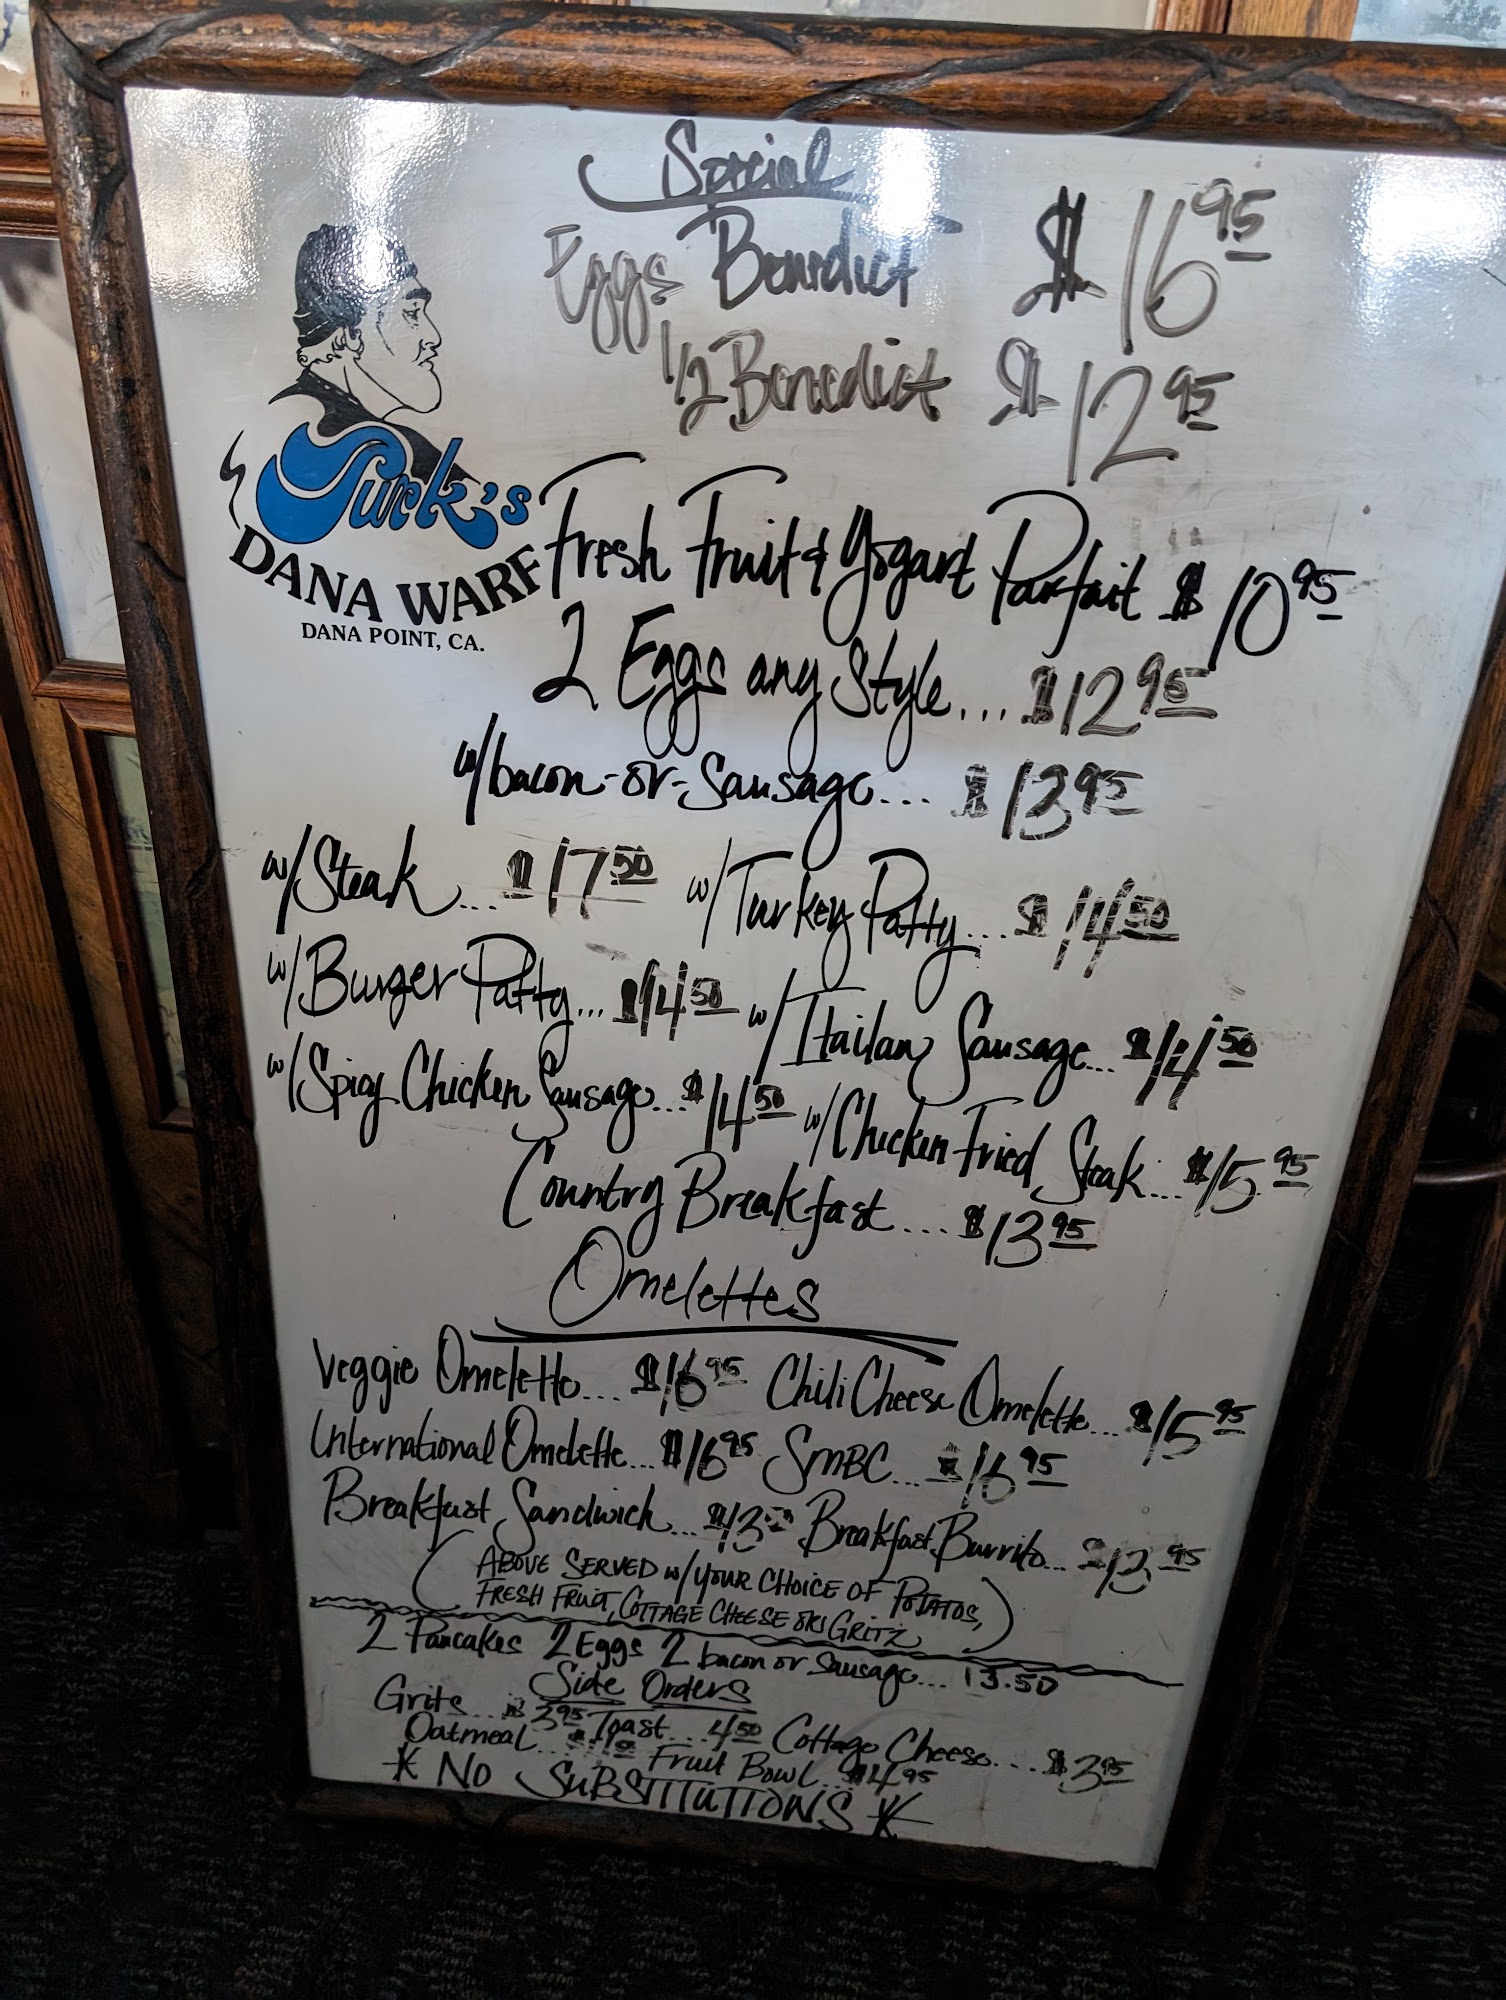 Special
Eggs Benedict $16.95
1/2 Benedict $12.95
Turk's
DANA WARF
DANA POINT, CA.
Fresh Fruit & Yogart Parfait $10.95
2 Eggs any Style... $12.95
w/bacon-or-Sausage... $13.95
w/Steak... $17.50 w/Turkey Patty... $14.50
w/Burger Patty... $14.50 w/Itailan Sausage... $14.50
w/Spicy Chicken Sausage... $14.50 w/Chicken Fried Steak... $15.95
Country Breakfast... $13.95
Omelettes
Veggie Omelette... $16.95 Chili Cheese Omelette... $15.95
International Omelette... $16.95 SMBC... $16.95
Breakfast Sandwich... $13.50 Breakfast Burrito... $13.95
(ABOVE SERVED w/YOUR CHOICE OF POTATOS,
FRESH FRUIT, COTTAGE CHEESE OR GRITZ)
2 Pancakes 2 Eggs 2 bacon or Sausage... 13.50
Side Orders
Grits... $3.95 Toast... 4.50 Cottage Cheese... $3.95
Oatmeal... Fruit Bowl... $4.95
* NO SUBSTITUTIONS *